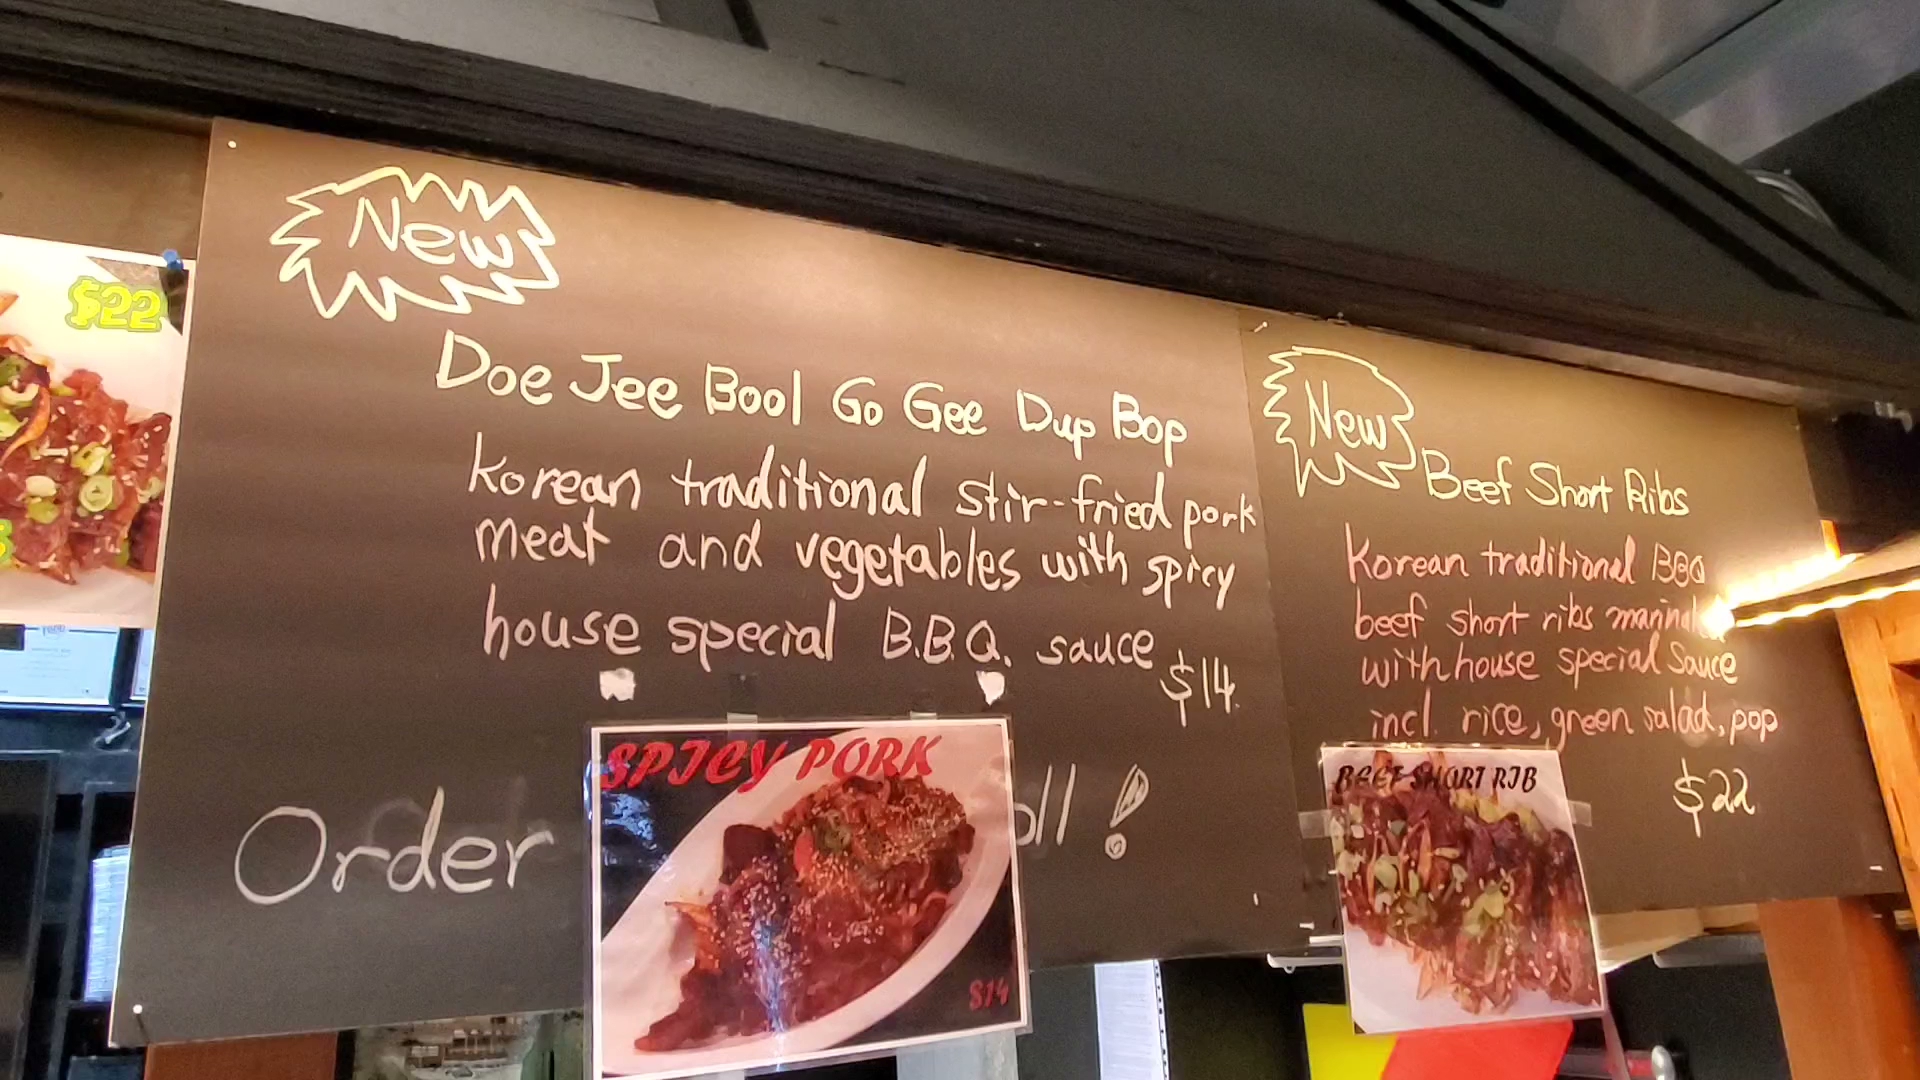 New
Doe Jee Bool Go Gee Dup Bop
Korean traditional stir-fried pork
meat and vegetables with spicy
house special B.B.Q. sauce
$14
Order
SPICY PORK
$14
New
Beef Short Ribs
Korean traditional BBQ
beef short ribs
with house special Sauce
incl. rice, green salad, pop
$22
BEEF SHORT RIB
$22